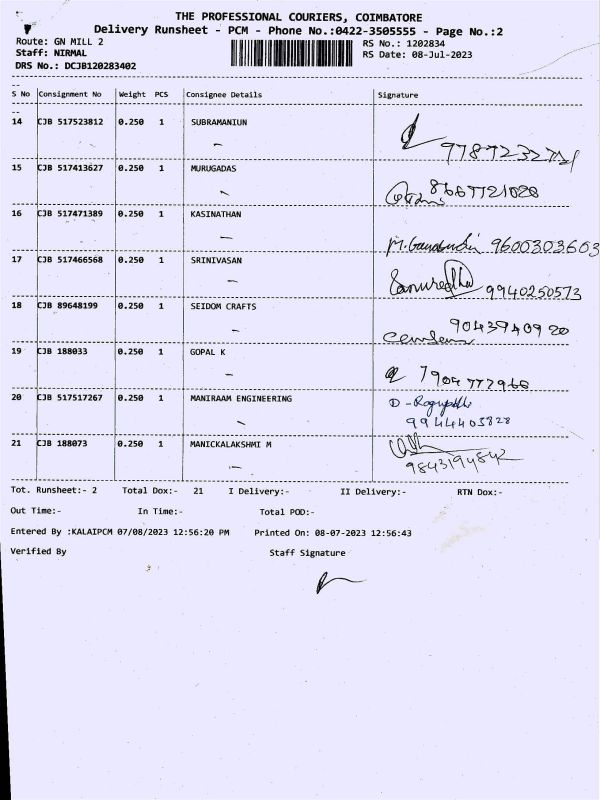 THE PROFESSIONAL COURIERS, COIMBATORE
Delivery Runsheet - PCM - Phone No.:0422-3505555 - Page No.:2
Route: GN MILL 2 RS No.: 1202834
Staff: NIRMAL RS Date: 08-Jul-2023
DRS No.: DCJB120283402
S No Consignment No Weight PCS Consignee Details Signature
14 CJB 517523812 0.250 1 SUBRAMANIUN
15 CJB 517413627 0.250 1 MURUGADAS
8667721028
16 CJB 517471389 0.250 1 KASINATHAN
9600303603
17 CJB 517466568 0.250 1 SRINIVASAN
9940250573
18 CJB 89648199 0.250 1 SEIDOM CRAFTS
9043940920
19 CJB 188033 0.250 1 GOPAL K
7904772960
20 CJB 517517267 0.250 1 MANIRAAM ENGINEERING
9944403828
21 CJB 188073 0.250 1 MANICKALAKSHMI M
9843194842
Tot. Runsheet:- 2 Total Dox:- 21 I Delivery:- II Delivery:- RTN Dox:-
Out Time:- In Time:- Total POD:-
Entered By :KALAIPCM 07/08/2023 12:56:20 PM Printed On: 08-07-2023 12:56:43
Verified By Staff Signature